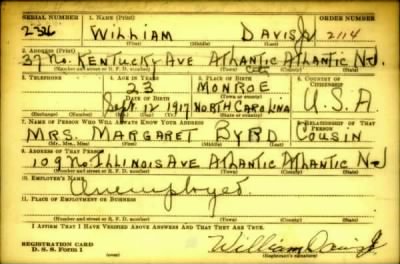 SERIAL NUMBER 1. NAME (Print) ORDER NUMBER
William Davis Jr 2114
(First) (Middle) (Last)
2. ADDRESS (Print)
37 No. Kentucky Ave Atlantic City Atlantic N.J.
(Number and street or R. F. D. number) (Town) (County) (State)
3. TELEPHONE 4. AGE IN YEARS 5. PLACE OF BIRTH 6. COUNTRY OF CITIZENSHIP
23 MONROE
DATE OF BIRTH (Town or county)
Sept. 12 1917 NORTH CAROLINA U.S.A.
(Exchange) (Number) (Mo.) (Day) (Yr.) (State or country)
7. NAME OF PERSON WHO WILL ALWAYS KNOW YOUR ADDRESS 8. RELATIONSHIP OF THAT PERSON
MRS. MARGARET BYRD COUSIN
(Mr., Mrs., Miss) (First) (Middle) (Last)
9. ADDRESS OF THAT PERSON
109 No Illinois Ave Atlantic Atlantic N-J
(Number and street or R. F. D. number) (Town) (County) (State)
10. EMPLOYER'S NAME
Unemployed
11. PLACE OF EMPLOYMENT OR BUSINESS
(Number and street or R. F. D. number) (Town) (County) (State)
I AFFIRM THAT I HAVE VERIFIED ABOVE ANSWERS AND THAT THEY ARE TRUE.
REGISTRATION CARD
D. S. S. Form 1 William Davis Jr
(Registrant's signature)